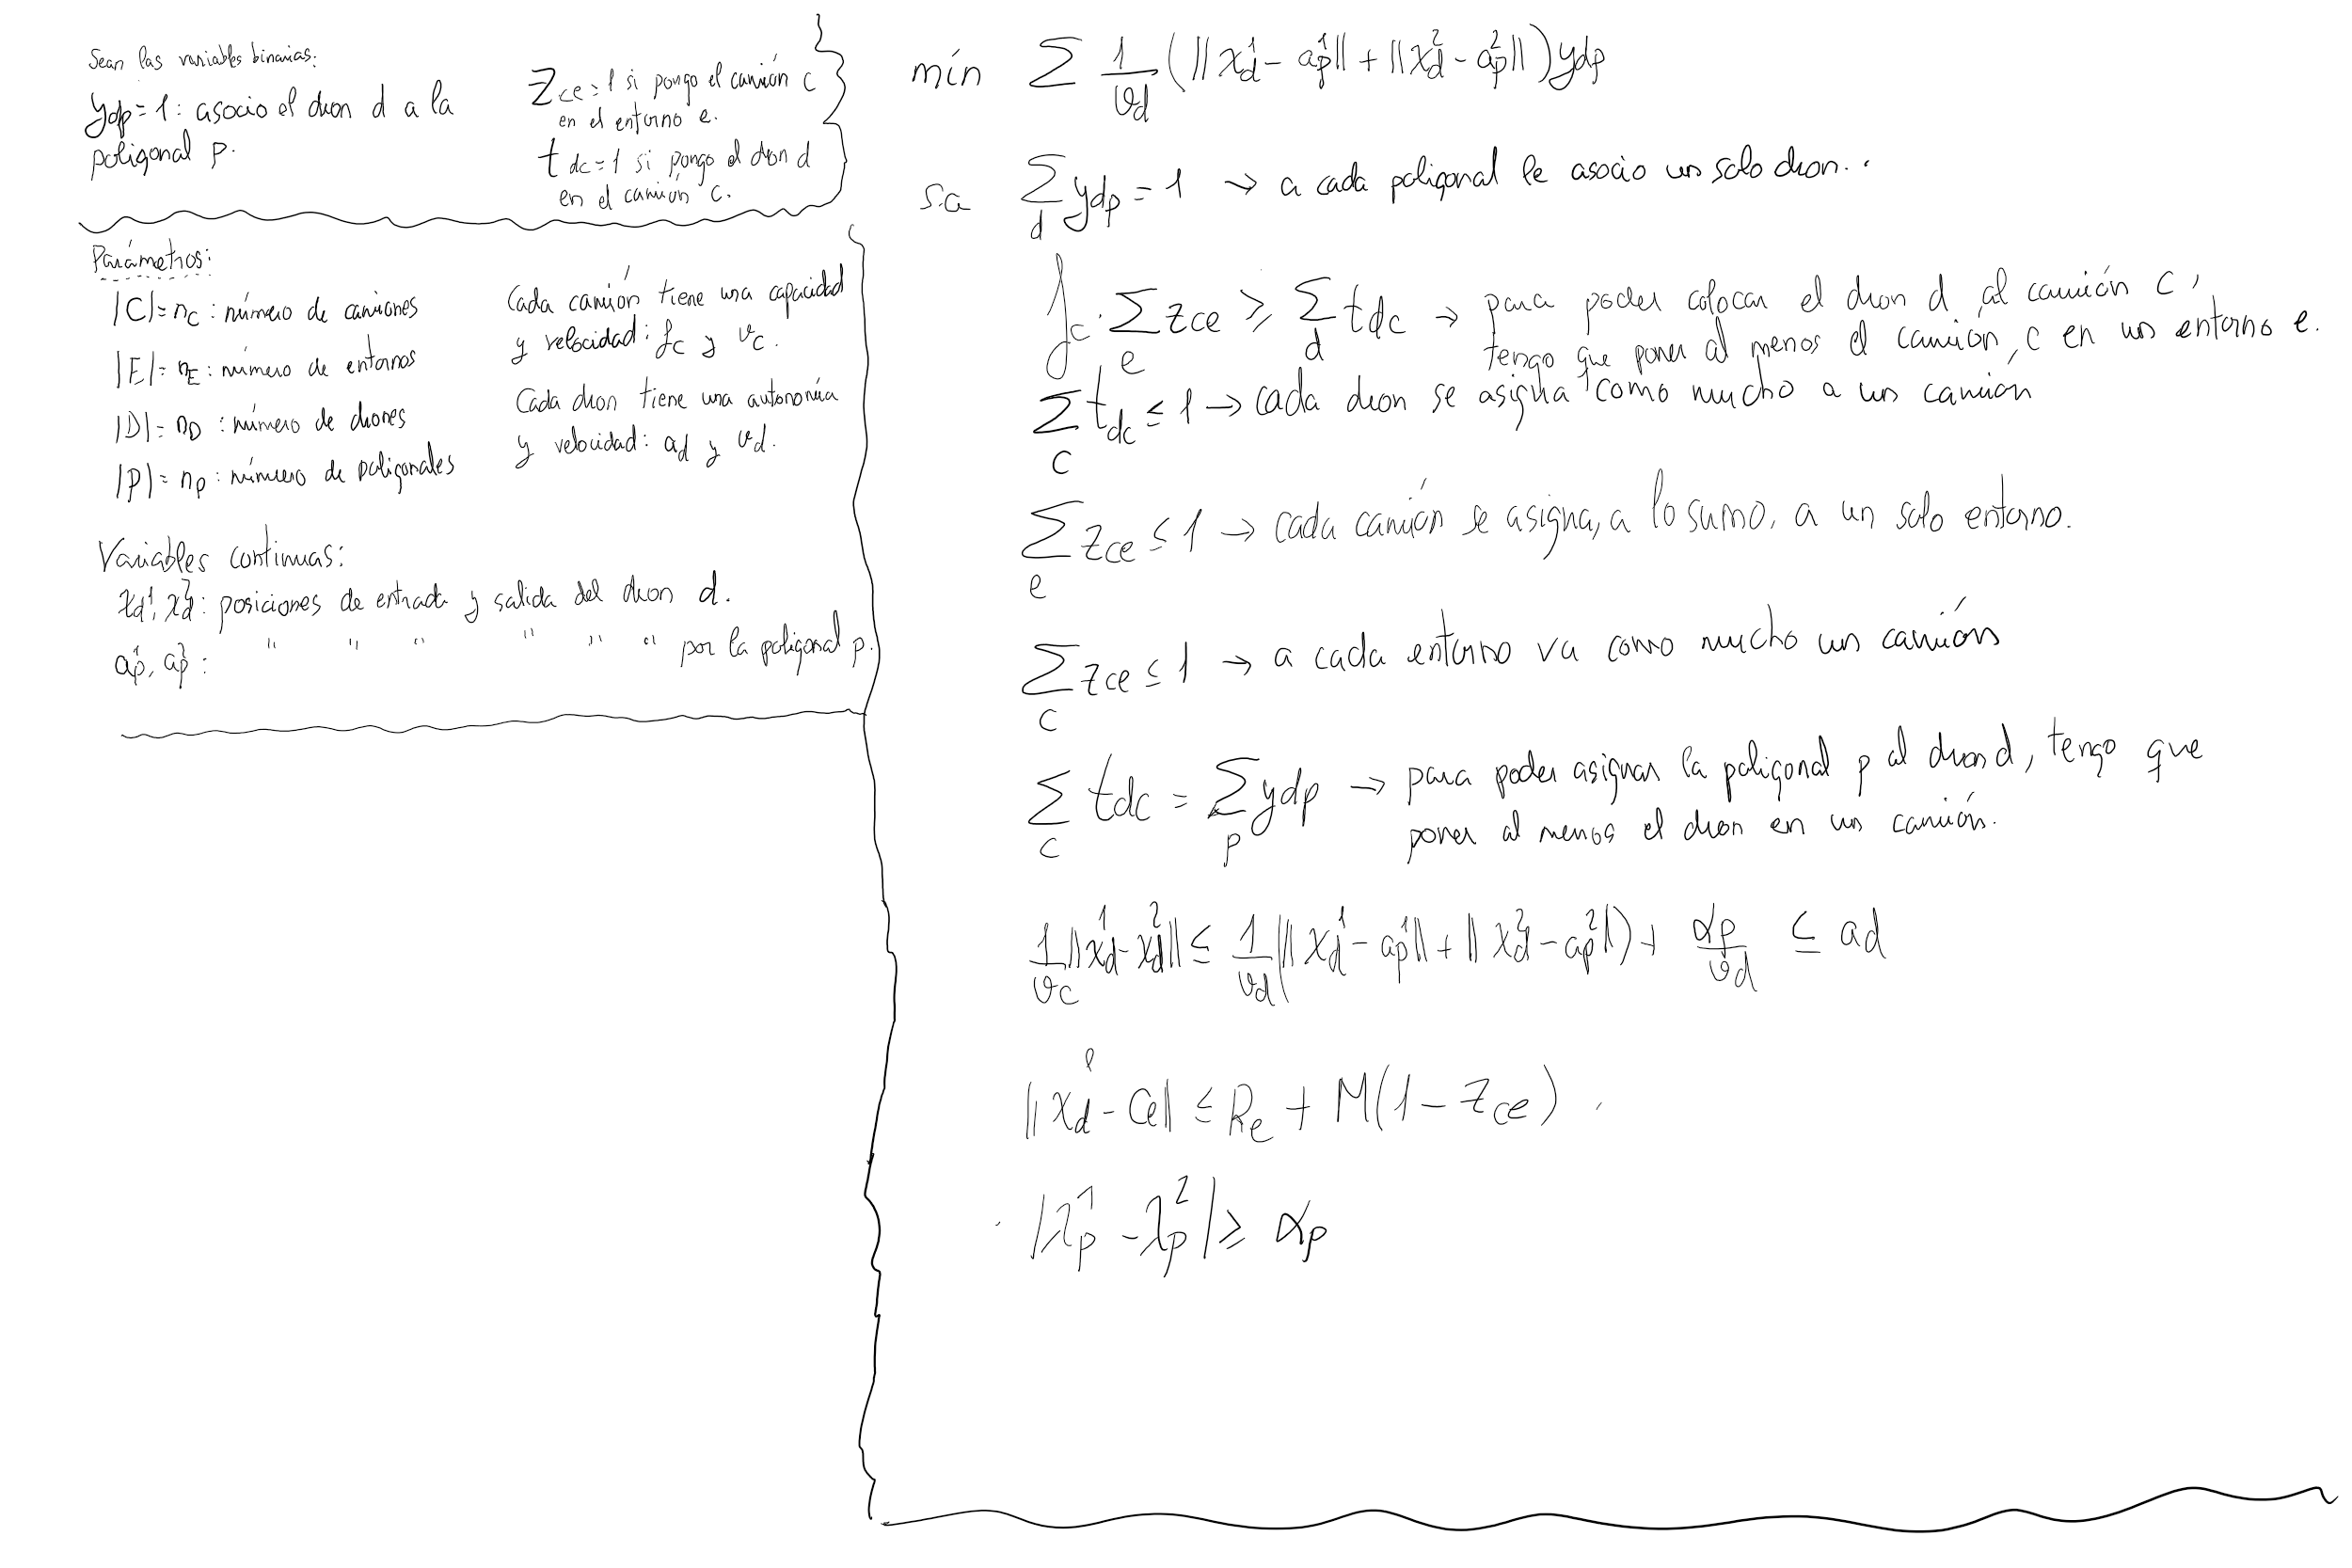 Sean las variables binarias:
y_dp = 1: asocio el dron d a la
poligonal p.
z_ce = 1 si pongo el camión c
en el entorno e.
t_dc = 1 si pongo el dron d
en el camión c.
Parámetros:
|C| = n_C : número de camiones
|E| = n_E : número de entornos
|D| = n_D : número de drones
|P| = n_P : número de poligonales
Cada camión tiene una capacidad
y velocidad: f_c y v_c.
Cada dron tiene una autonomía
y velocidad: a_d y v_d.
Variables continuas:
x_d^1, x_d^2 : posiciones de entrada y salida del dron d.
a_p^1, a_p^2 : " " " " " " por la poligonal p.
mín ∑ 1/v_d (||x_d^1 - a_p^1|| + ||x_d^2 - a_p^2||) y_dp
s.a ∑_d y_dp = 1 → a cada poligonal le asocio un solo dron.
f_c · ∑_e z_ce ≥ ∑_d t_dc → para poder colocar el dron d al camión c,
tengo que poner al menos el camión c en un entorno e.
∑_c t_dc ≤ 1 → cada dron se asigna como mucho a un camión
∑_e z_ce ≤ 1 → cada camión se asigna, a lo sumo, a un solo entorno.
∑_c z_ce ≤ 1 → a cada entorno va como mucho un camión
∑_c t_dc = ∑_p y_dp → para poder asignar la poligonal p al dron d, tengo que
poner al menos el dron en un camión.
1/v_c ||x_d^1 - x_d^2|| ≤ 1/v_d (||x_d^1 - a_p^1|| + ||x_d^2 - a_p^2||) + α_p/v_d ≤ a_d
||x_d^l - c_e|| ≤ R_e + M(1 - z_ce)
|λ_p^1 - λ_p^2| ≥ α_p